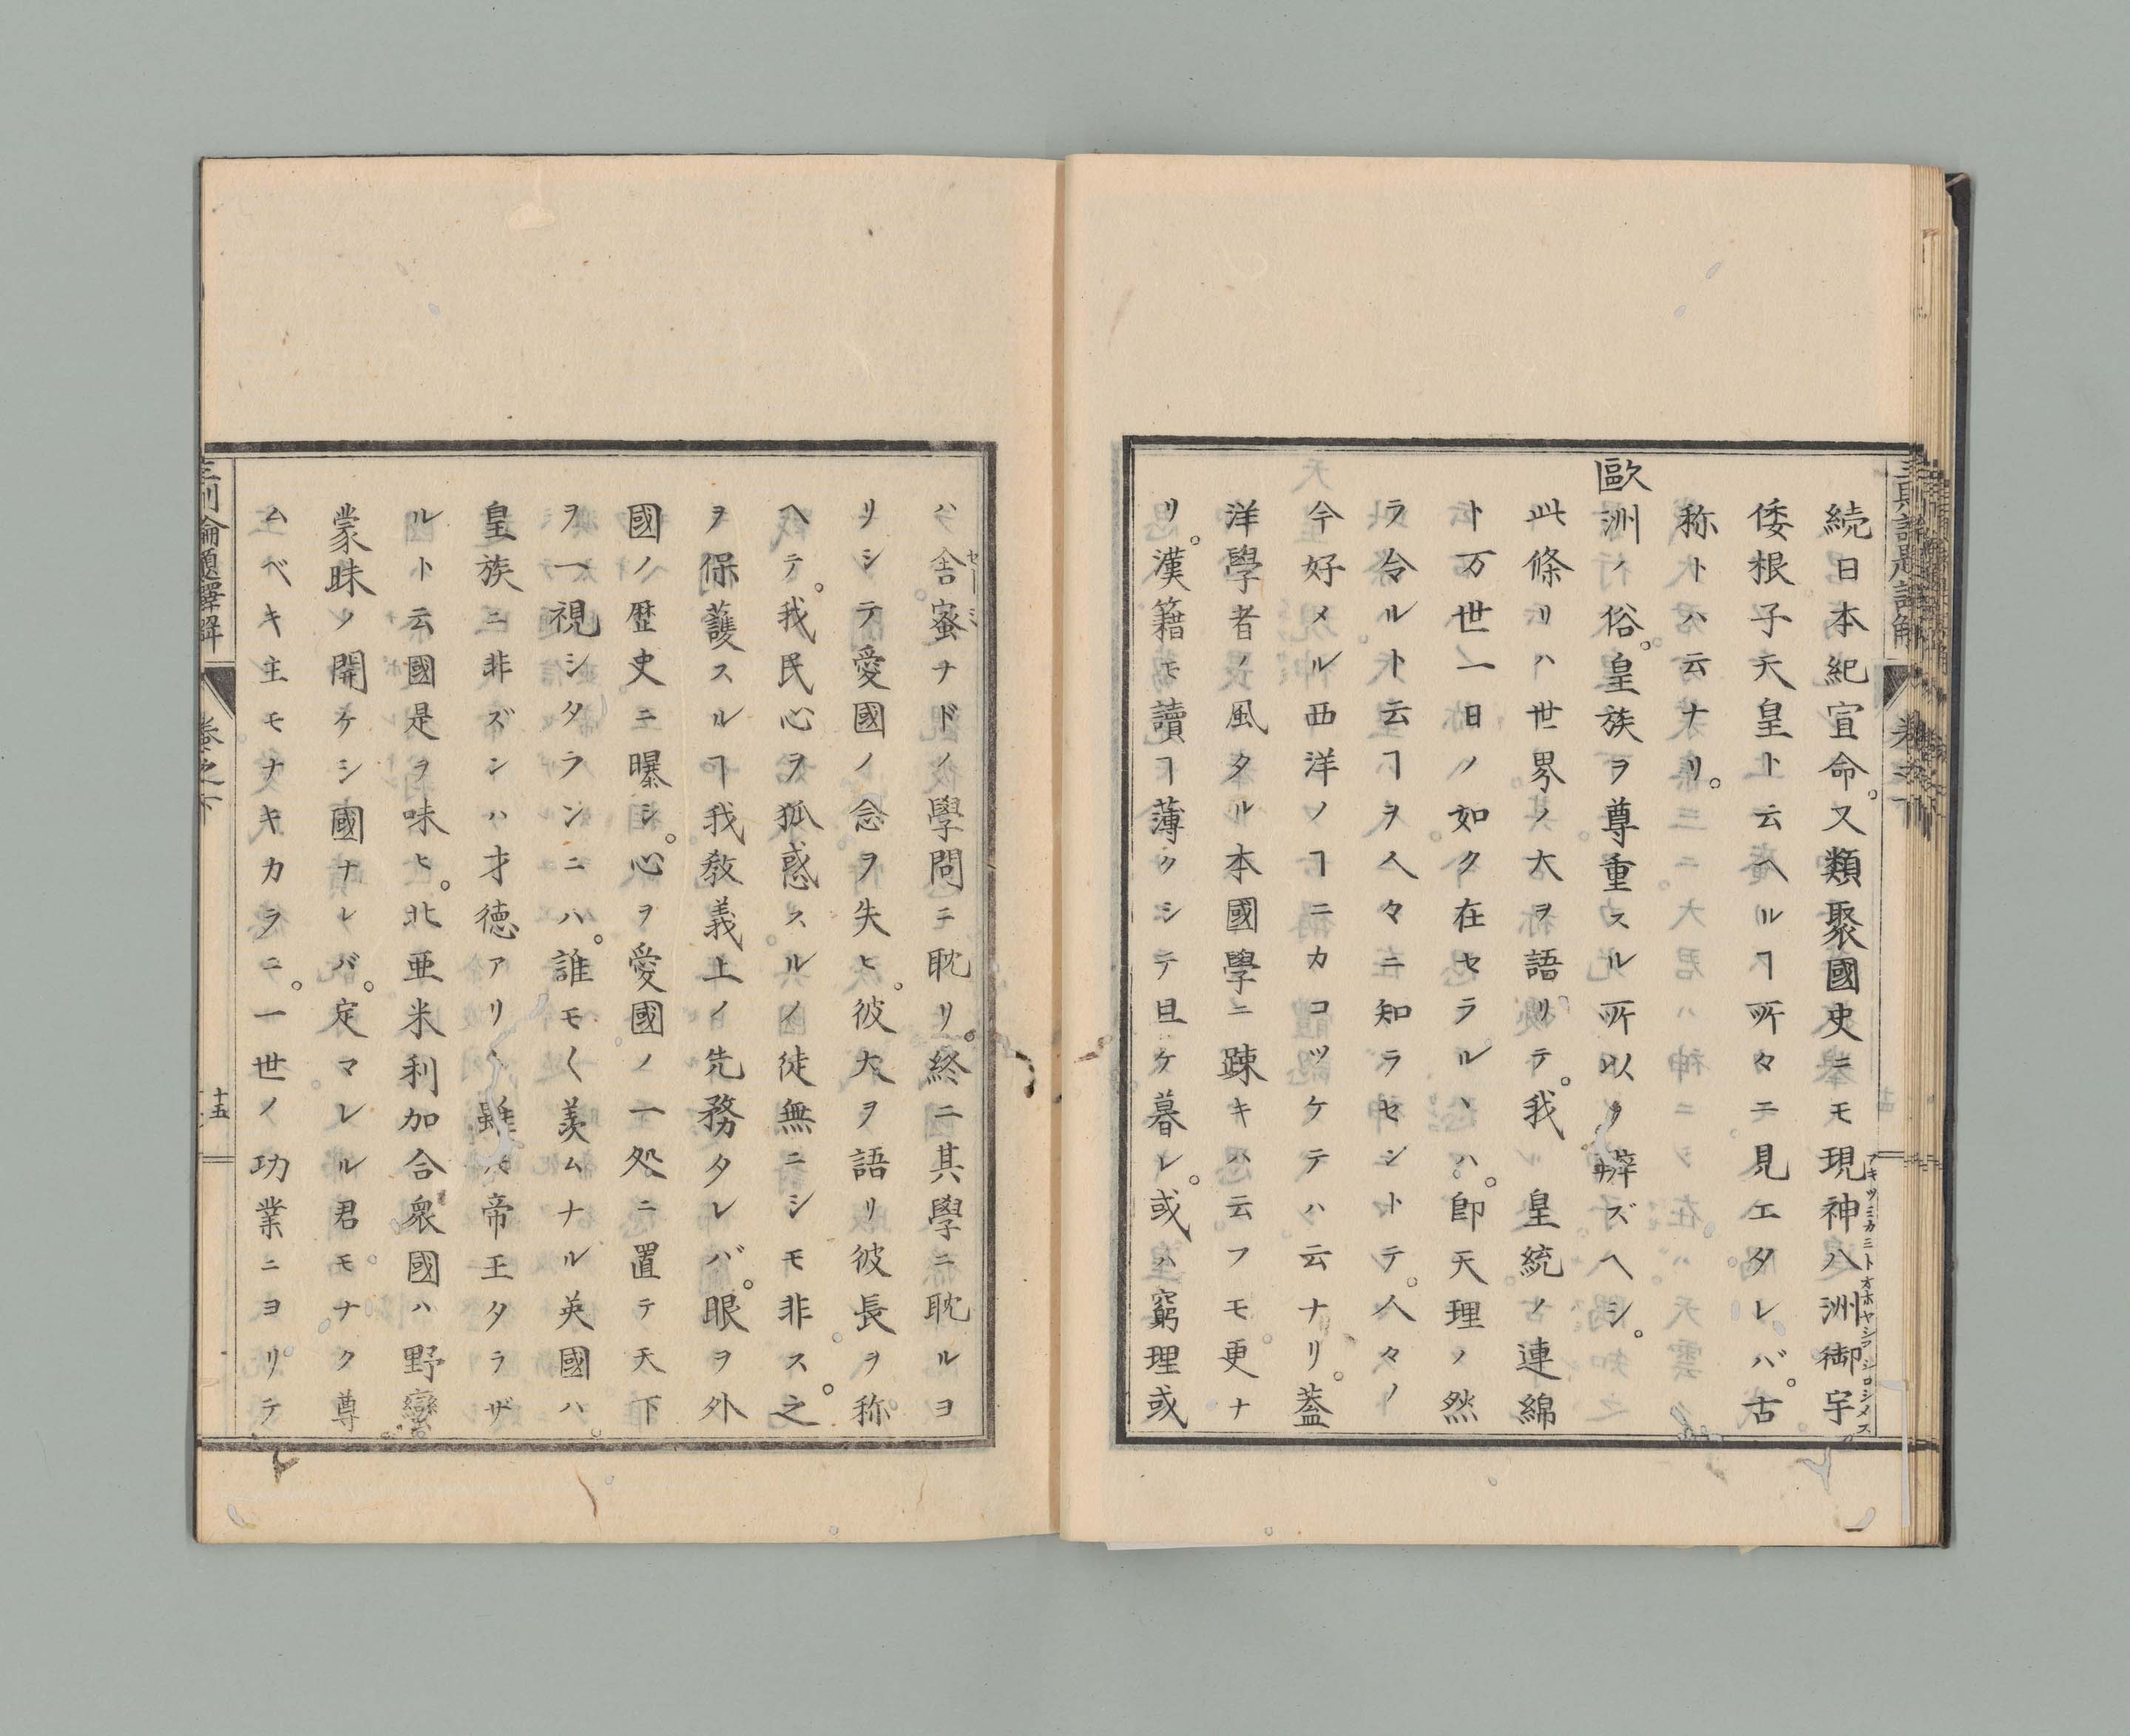 続日本紀宣命。又類聚國史ニモ現神八洲御宇
アキツミカミトオホヤシマシロシメス
倭根子天皇ト云ヘルヿ所々ニ見エタレバ。古
称トハ云ナリ。
歐洲ノ俗。皇族ヲ尊重スル所以ヲ辨ズヘシ。
此條リハ世界ノ大ヲ語リテ。我 皇統ノ連綿
ト万世一日ノ如ク在セラルヽハ。卽天理ノ然
ラ令ルト云ヿヲ人々ニ知ラセントテ。人々ノ
今好メル西洋ノヿニカコツケテハ云ナリ。蓋
洋學者ノ風タル本國學ニ踈キハ云フモ更ナ
リ。漢籍モ讀ヿ薄クシテ旦ケ暮レ。或ハ窮理或
ハ舎蜜ナドノ學問ニ耽リ。終ニ其學ニ耽ルヨ
セーミ
リシテ愛國ノ念ヲ失ヒ。彼大ヲ語リ彼長ヲ称
ヘテ。我民心ヲ狐惑スルノ徒無ニシモ非ス。之
ヲ保護スルヿ我教義上ノ先務タレバ。眼ヲ外
國ノ歴史ニ曝シ。心ヲ愛國ノ一処ニ置テ天下
ヲ一視シタランニハ。誰モ〱羨ムナル英國ハ。
皇族ニ非ズンハ才徳アリ〱雖ヒ帝王タラザ
ルト云國是ヲ味ヒ。北亜米利加合衆國ハ野蠻
蒙昧ノ開ケシ國ナレバ。定マレル君モナク尊
ムベキ主モナキカラニ。一世ノ功業ニヨリテ
三則論題釋解
卷之下
十五